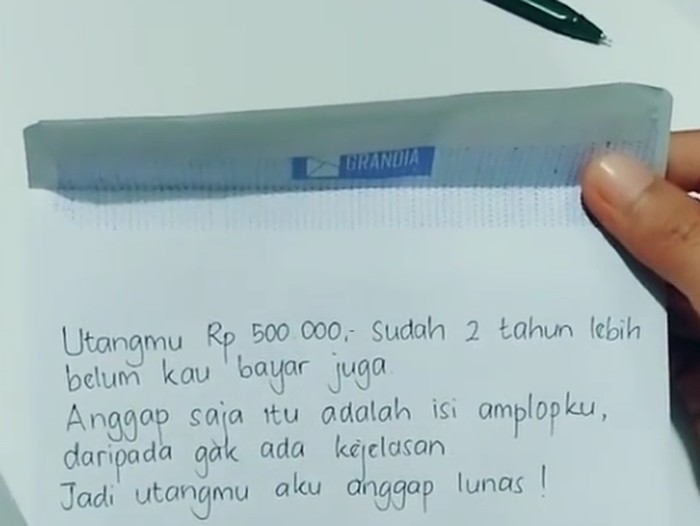 GRANDIA
Utangmu Rp 500.000,- sudah 2 tahun lebih
belum kau bayar juga.
Anggap saja itu adalah isi amplopku,
daripada gak ada kejelasan
Jadi utangmu aku anggap lunas !